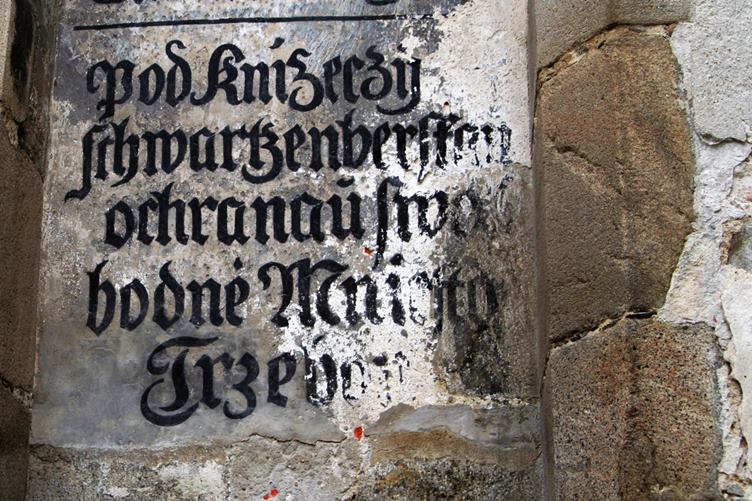 Pod Knižeczý
schwartzenberſkau
ochranaú ſwo
bodné Mnieſto
Trzeboň